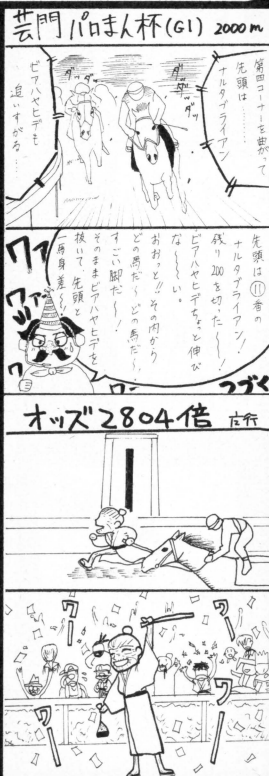 芸門パロまん杯(GI) 2000m
第四コーナーを曲がって
先頭は………
ナルタブライアン
ビアハヤヒデも
追いすがる…
ダッ
ダッ
ダッ
ダッ
先頭は⑪番の
ナルタブライアン!
残り200を切った〜!
ビアハヤヒデちょっと伸び
な〜〜い。
おおっと!!その内から
どの馬だ〜、どの馬だ〜。
すごい脚だ〜!
そのままビアハヤヒデを
抜いて先頭と
一馬身差〜!
ワァ
ワァー
ワー
ワー
つづく
オッズ2804倍
ワー
ワー
ワー
ワー